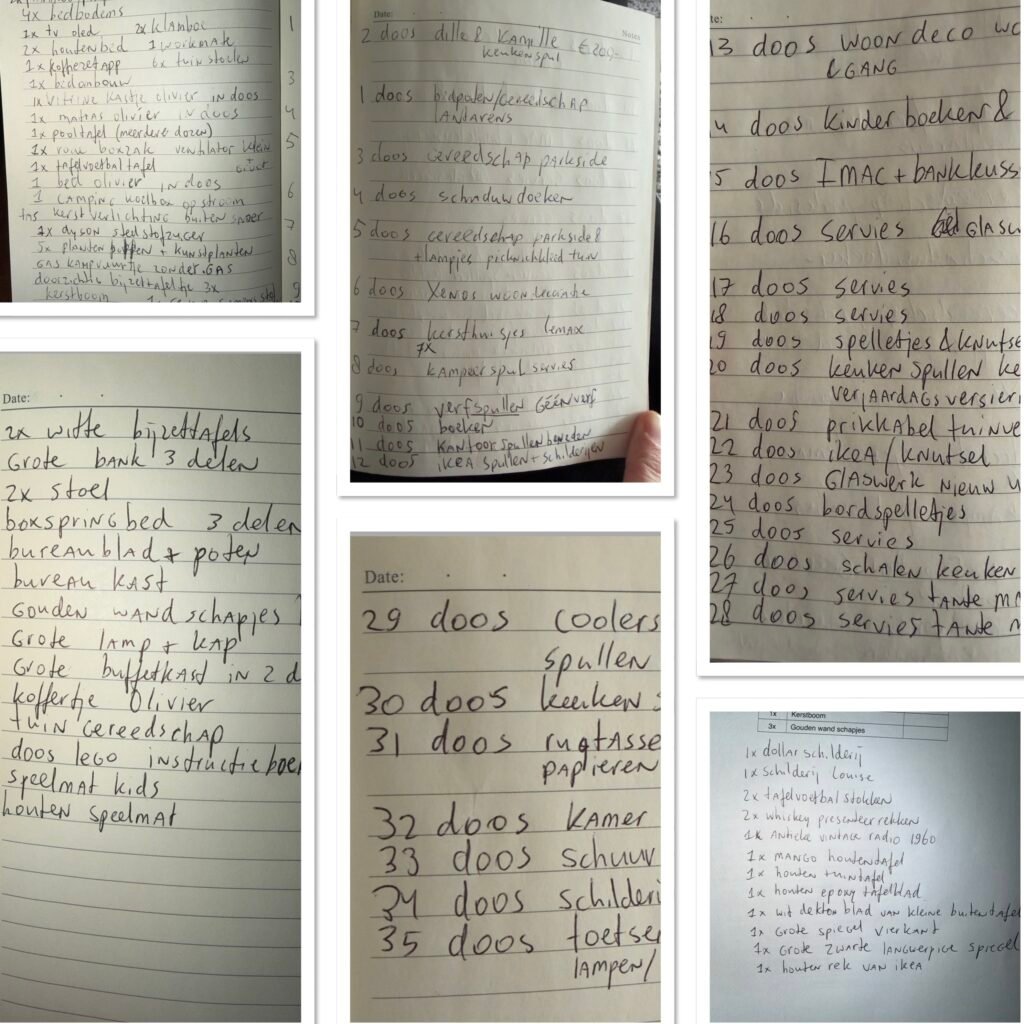 4x bedbodems
1x tv oled 2x klamboe
2x houten bed 1 workmate
1x koffiezetapp 6x tuin stoelen
1x bedombouw
1x vitrine kastje olivier in doos
1x matras olivier in doos
1x pooltafel (meerdere dozen)
1x boxzak ventilator klein
1x tafelvoetbaltafel groot
1 bed olivier in doos
1 camping koelbox op stroom
kerstverlichting buiten snoer
1x dyson steelstofzuiger
5x planten + kunstplanten
GAS kampvuurtje zonder GAS
doorzichtig bijzettafeltje 3x
kerstboom
1
3
4
5
6
7
8
9
Date:
Notes
2 doos dille & kamille €200,-
keukenspul
1 doos bidpalen/gereedschap
lantarens
3 doos gereedschap parkside
4 doos schaduwdoeken
5 doos gereedschap parkside &
+lampjes picknickkleed tuin
6 doos Xenos woon
7 doos kersthuisjes lemax
7x
8 doos kampeerspul servies
9 doos verfspullen géén verf
10 doos boeken
11 doos kantoorspullen beneden
12 doos ikea spullen + schilderijen
te:
13 doos woondeco wo
& GANG
4 doos kinderboeken &
5 doos IMAC + bankkuss
16 doos servies Glasw
17 doos servies
18 doos servies
19 doos spelletjes & knutse
20 doos keuken spullen ke
verjaardagsversieri
21 doos prikkabel tuinve
22 doos ikea / knutsel
23 doos Glaswerk nieuw
24 doos bordspelletjes
25 doos servies
26 doos schalen keuken
27 doos servies tante m
28 doos servies tante m
Date:
2x witte bijzettafels
Grote bank 3 delen
2x stoel
boxspringbed 3 delen
bureaublad + poten
bureau kast
Gouden wandschapjes
Grote lamp + kap
Grote buffetkast in 2 d
koffertje Olivier
tuin gereedschap
doos lego instructieboe
speelmat kids
houten speelmat
Date:
29 doos coolers
spullen
30 doos keuken
31 doos rugtasse
papieren
32 doos kamer
33 doos schuur
34 doos schilderi
35 doos toetsen
lampen/
1x Kerstboom
3x Gouden wand schapjes
1x dollar schilderij
1x schilderij Louise
2x tafelvoetbal stokken
2x whiskey presenteer rekken
1x Antieke vintage radio 1960
1x mango houten tafel
1x houten tuintafel
1x houten epoxy tafelblad
1x wit dekton blad van kleine buitentafel
1x Grote spiegel vierkant
1x Grote zwarte langwerpige spiegel
1x houten rek van ikea